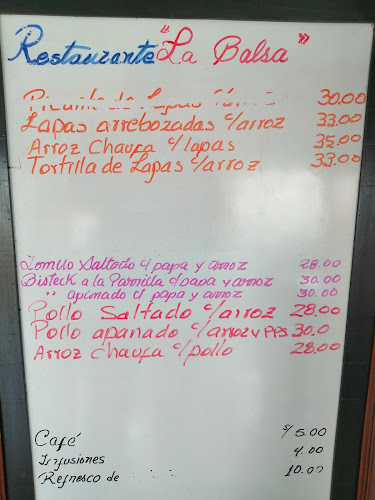 Restaurante "La Balsa"
Picante de Lapas 30.00
Lapas arrebozadas c/arroz 33.00
Arroz Chaufa c/lapas 35.00
Tortilla de Lapas c/arroz 33.00
Lomito Saltado c/ papa y arroz 28.00
Bisteck a la Parrilla c/papa y arroz 30.00
" apanado c/ papa y arroz 30.00
Pollo Saltado c/arroz 28.00
Pollo apanado c/arroz y PPS 30.0
Arroz chaufa c/pollo 28.00
Café s/ 5.00
Infusiones 4.00
Refresco de 10.00